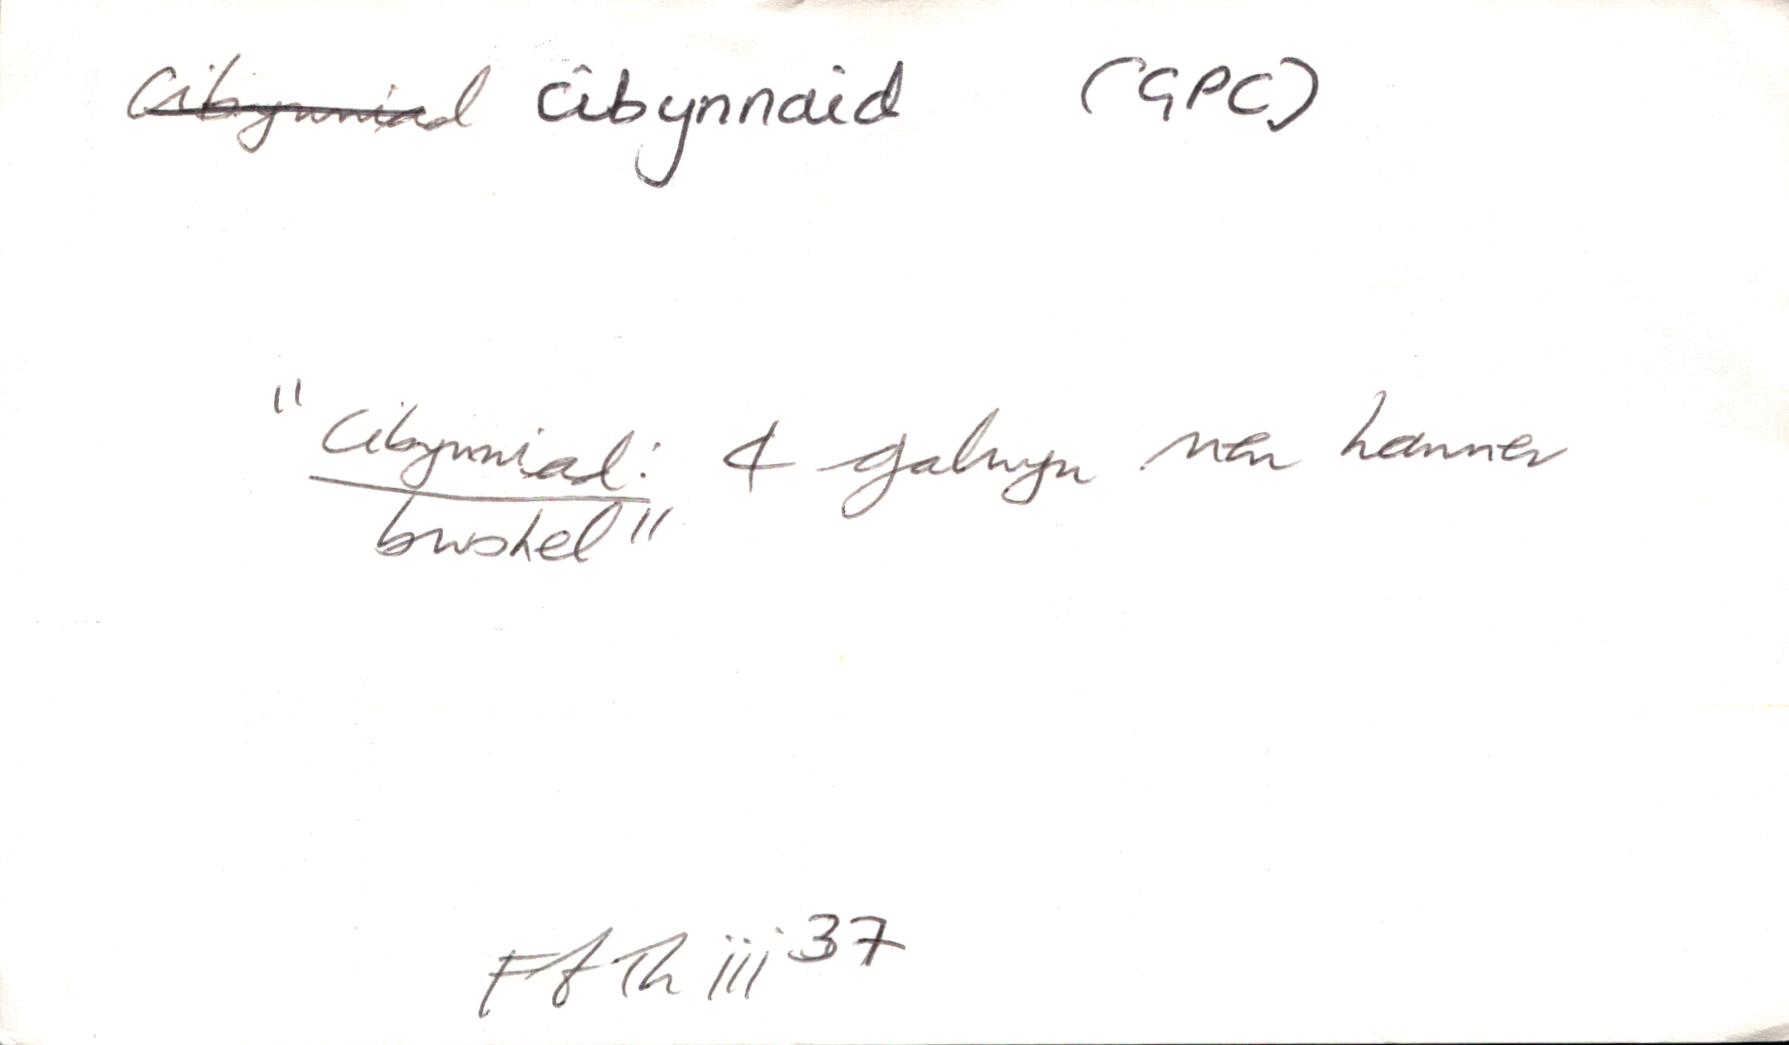 Cibynniad cibynnaid (GPC)
"Cibynniad: 4 galwyn neu hanner
bwshel"
Ff Th iii 37